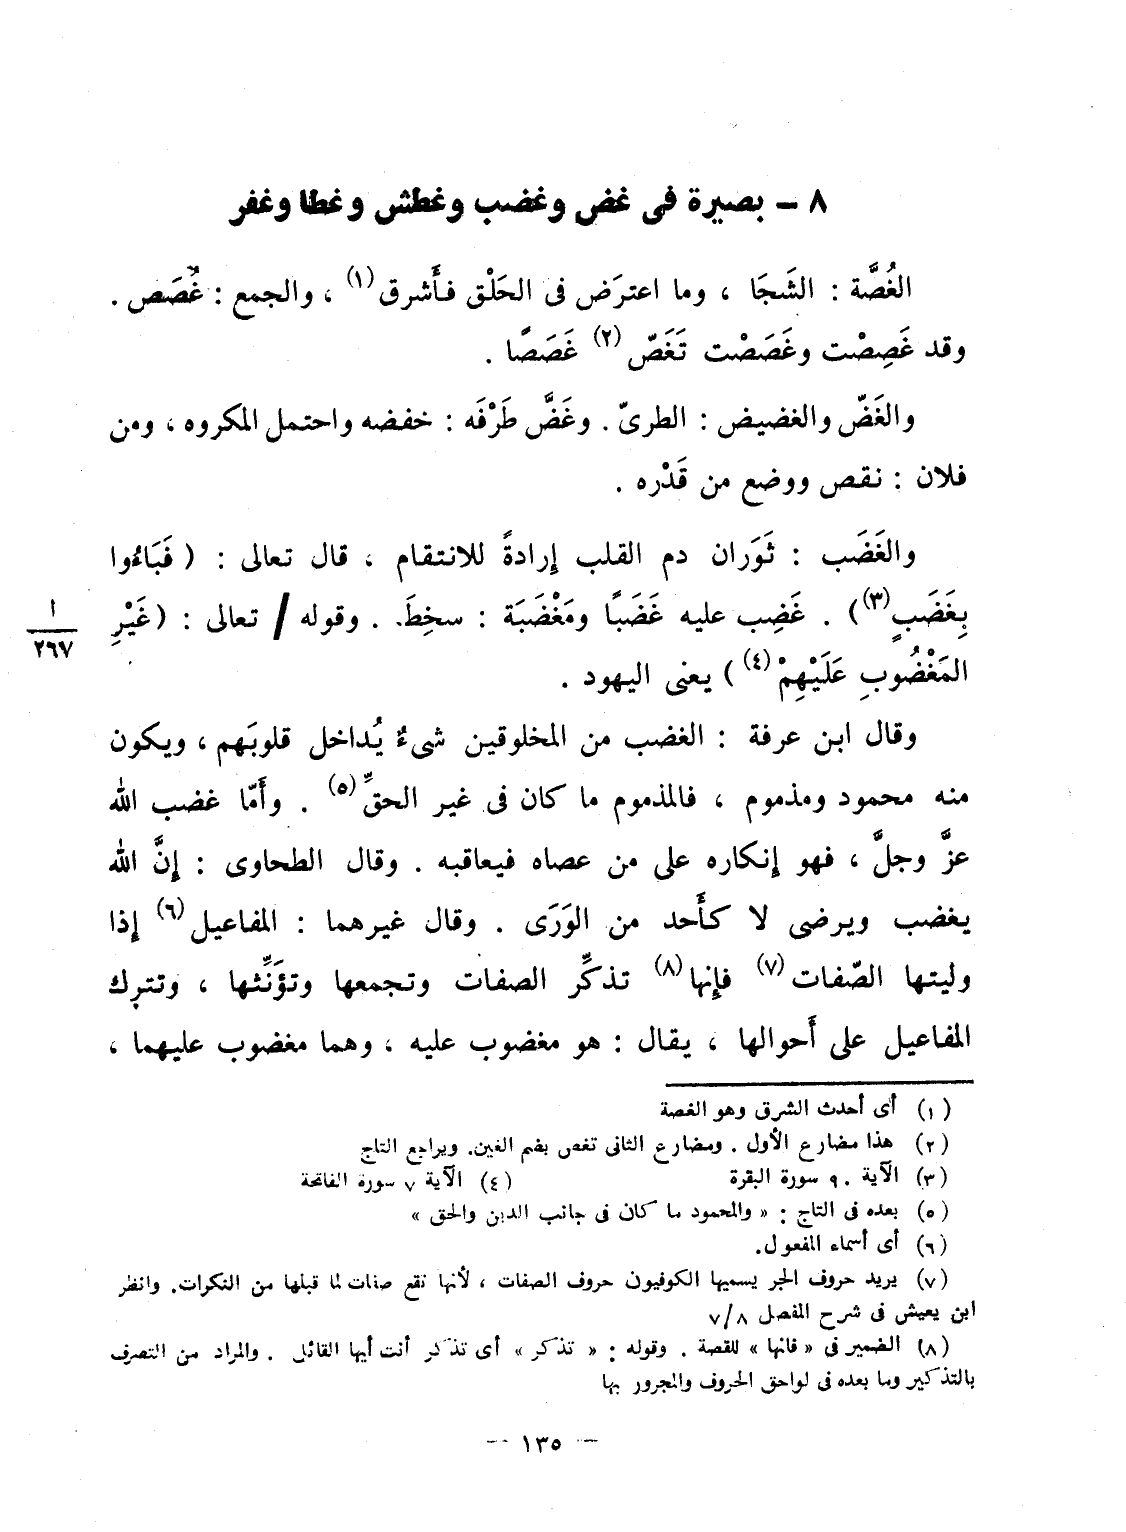 ٨ - بصيرة فى غض وغضب وغطش وغطا وغفر
الغُصَّة : الشَجَا ، وما اعترَض فى الحَلْق فأَشرق(١) ، والجمع : غُصَص .
وقد غَصِصْت وغَصَصْت تَغَصّ(٢) غَصَصًا .
والغَضّ والغضيض : الطرىّ . وغَضَّ طَرْفَه : خفضه واحتمل المكروه ، ومن
فلان : نقص ووضع من قَدْره .
والغَضَب : ثَوَران دم القلب إرادةً للانتقام ، قال تعالى : ( فَبَاءُوا
بِغَضَبٍ(٣) ) . غَضِب عليه غَضَبًا ومَغْضَبَة : سخِطَ . وقوله / تعالى : ( غَيْرِ
ا
٢٦٧
المَغْضُوبِ عَلَيْهِمْ(٤) ) يعنى اليهود .
وقال ابن عرفة : الغضب من المخلوقين شىءٌ يُداخل قلوبَهم ، ويكون
منه محمود ومذموم ، فالمذموم ما كان فى غير الحقِّ(٥) . وأَمّا غضب الله
عزَّ وجلَّ ، فهو إنكاره على من عصاه فيعاقبه . وقال الطحاوى : إنَّ الله
يغضب ويرضى لا كأَحد من الوَرَى . وقال غيرهما : المفاعيل(٦) إذا
وليتها الصّفات(٧) فإنها(٨) تذكِّر الصفات وتجمعها وتؤَنِّثها ، وتترك
المفاعيل على أَحوالها ، يقال : هو مغضوب عليه ، وهما مغضوب عليهما ،
(١) أى أحدث الشرق وهو الغصة
(٢) هذا مضارع الأول . ومضارع الثانى تغص بضم الغين. ويراجع التاج
(٣) الآية ٩٠ سورة البقرة (٤) الآية ٧ سورة الفاتحة
(٥) بعده فى التاج : « والمحمود ما كان فى جانب الدين والحق »
(٦) أى أسماء المفعول.
(٧) يريد حروف الجر يسميها الكوفيون حروف الصفات ، لأنها تقع صفات لما قبلها من النكرات. وانظر
ابن يعيش فى شرح المفصل ٧/٨
(٨) الضمير فى « فانها » للقصة . وقوله : « تذكر » أى تذكر أنت أيها القائل . والمراد من التصرف
بالتذكير وما بعده فى لواحق الحروف والمجرور بها
— ١٣٥ —